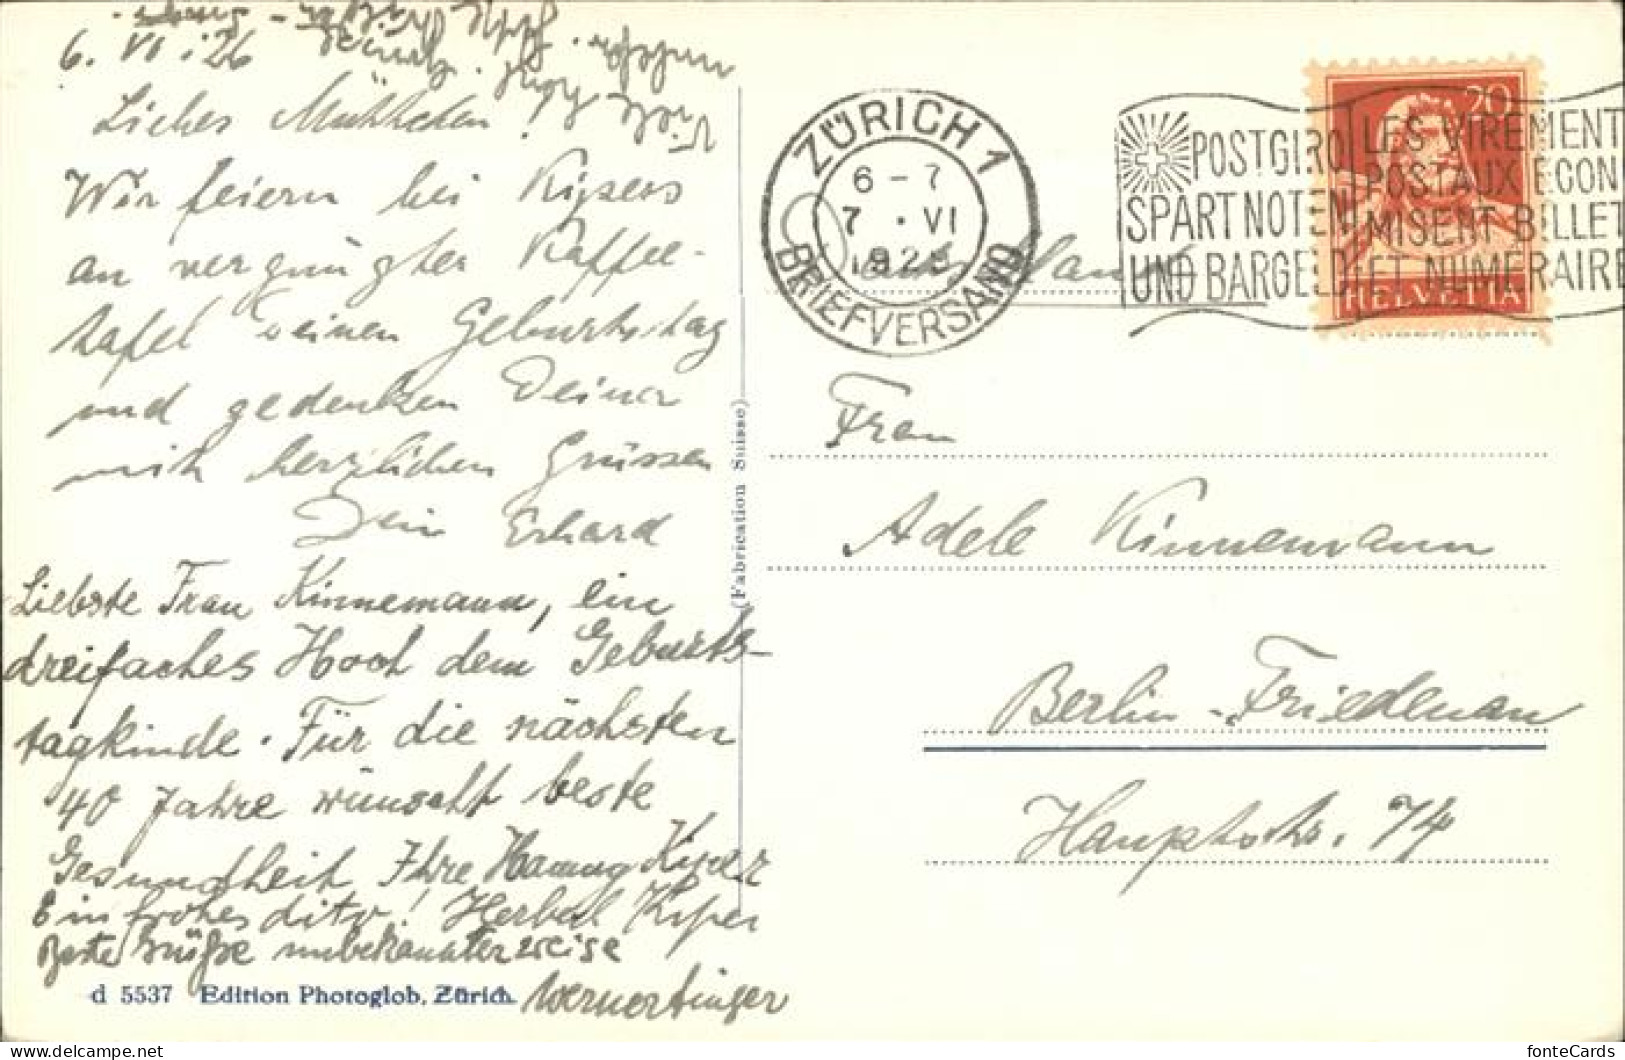 6. VI. 26
Liebes Mütterchen!
Wir feiern bei Kypers
an vergnügter Kaffee-
tafel Deinen Geburtstag
und gedenken Deiner
mit herzlichen Grüssen
Dein Erhard
Liebste Frau Kinnemann, ein
dreifaches Hoch dem Geburts-
tagkinde. Für die nächsten
40 Jahre wünscht beste
Gesundheit Ihre
Ein frohes dito! Kyper
Beste Grüße unbekannterweise
d 5537 Edition Photoglob, Zürich.
(Fabrication Suisse)
ZÜRICH 1
6-7
7. VI
BRIEFVERSAND
POSTGIRO
SPART NOTEN
UND BARGELD
LES VIREMENT
POSTAUX ECON
MISENT BILLET
ET NUMERAIRE
20
HELVETIA
Frau
Adele Kinnemann
Berlin-Friedenau
Hauptstr. 74
fonteCards